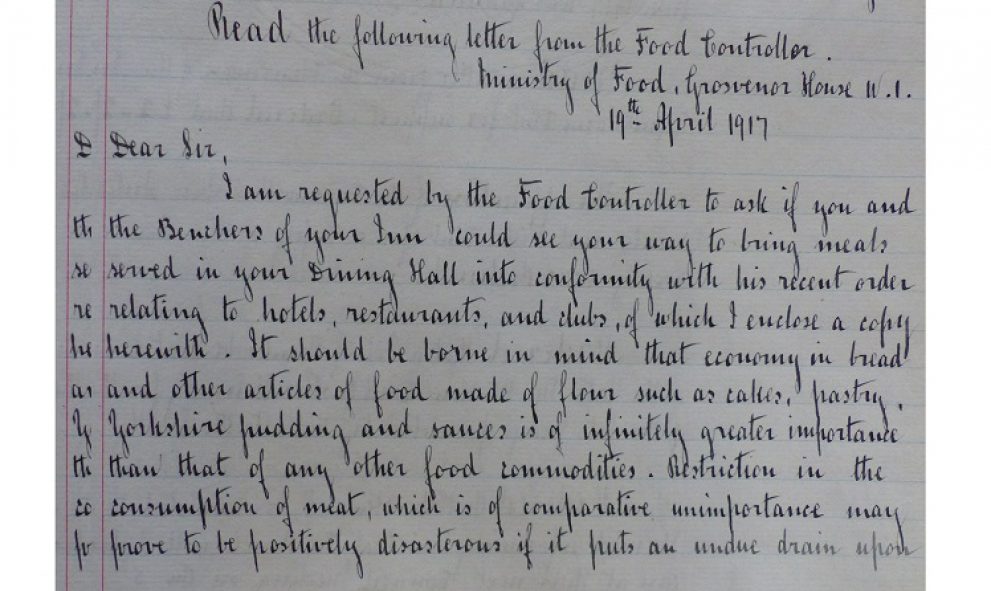 Read the following letter from the Food Controller.
Ministry of Food, Grosvenor House W.1.
19th April 1917
D Dear Sir,
I am requested by the Food Controller to ask if you and
th the Benchers of your Inn could see your way to bring meals
se served in your Dining Hall into conformity with his recent order
re relating to hotels, restaurants, and clubs, of which I enclose a copy
he herewith. It should be borne in mind that economy in bread
an and other articles of food made of flour such as cakes, pastry,
Y Yorkshire pudding and sauces is of infinitely greater importance
th than that of any other food commodities. Restriction in the
co consumption of meat, which is of comparative unimportance may
pr prove to be positively disasterous if it puts an undue drain upon